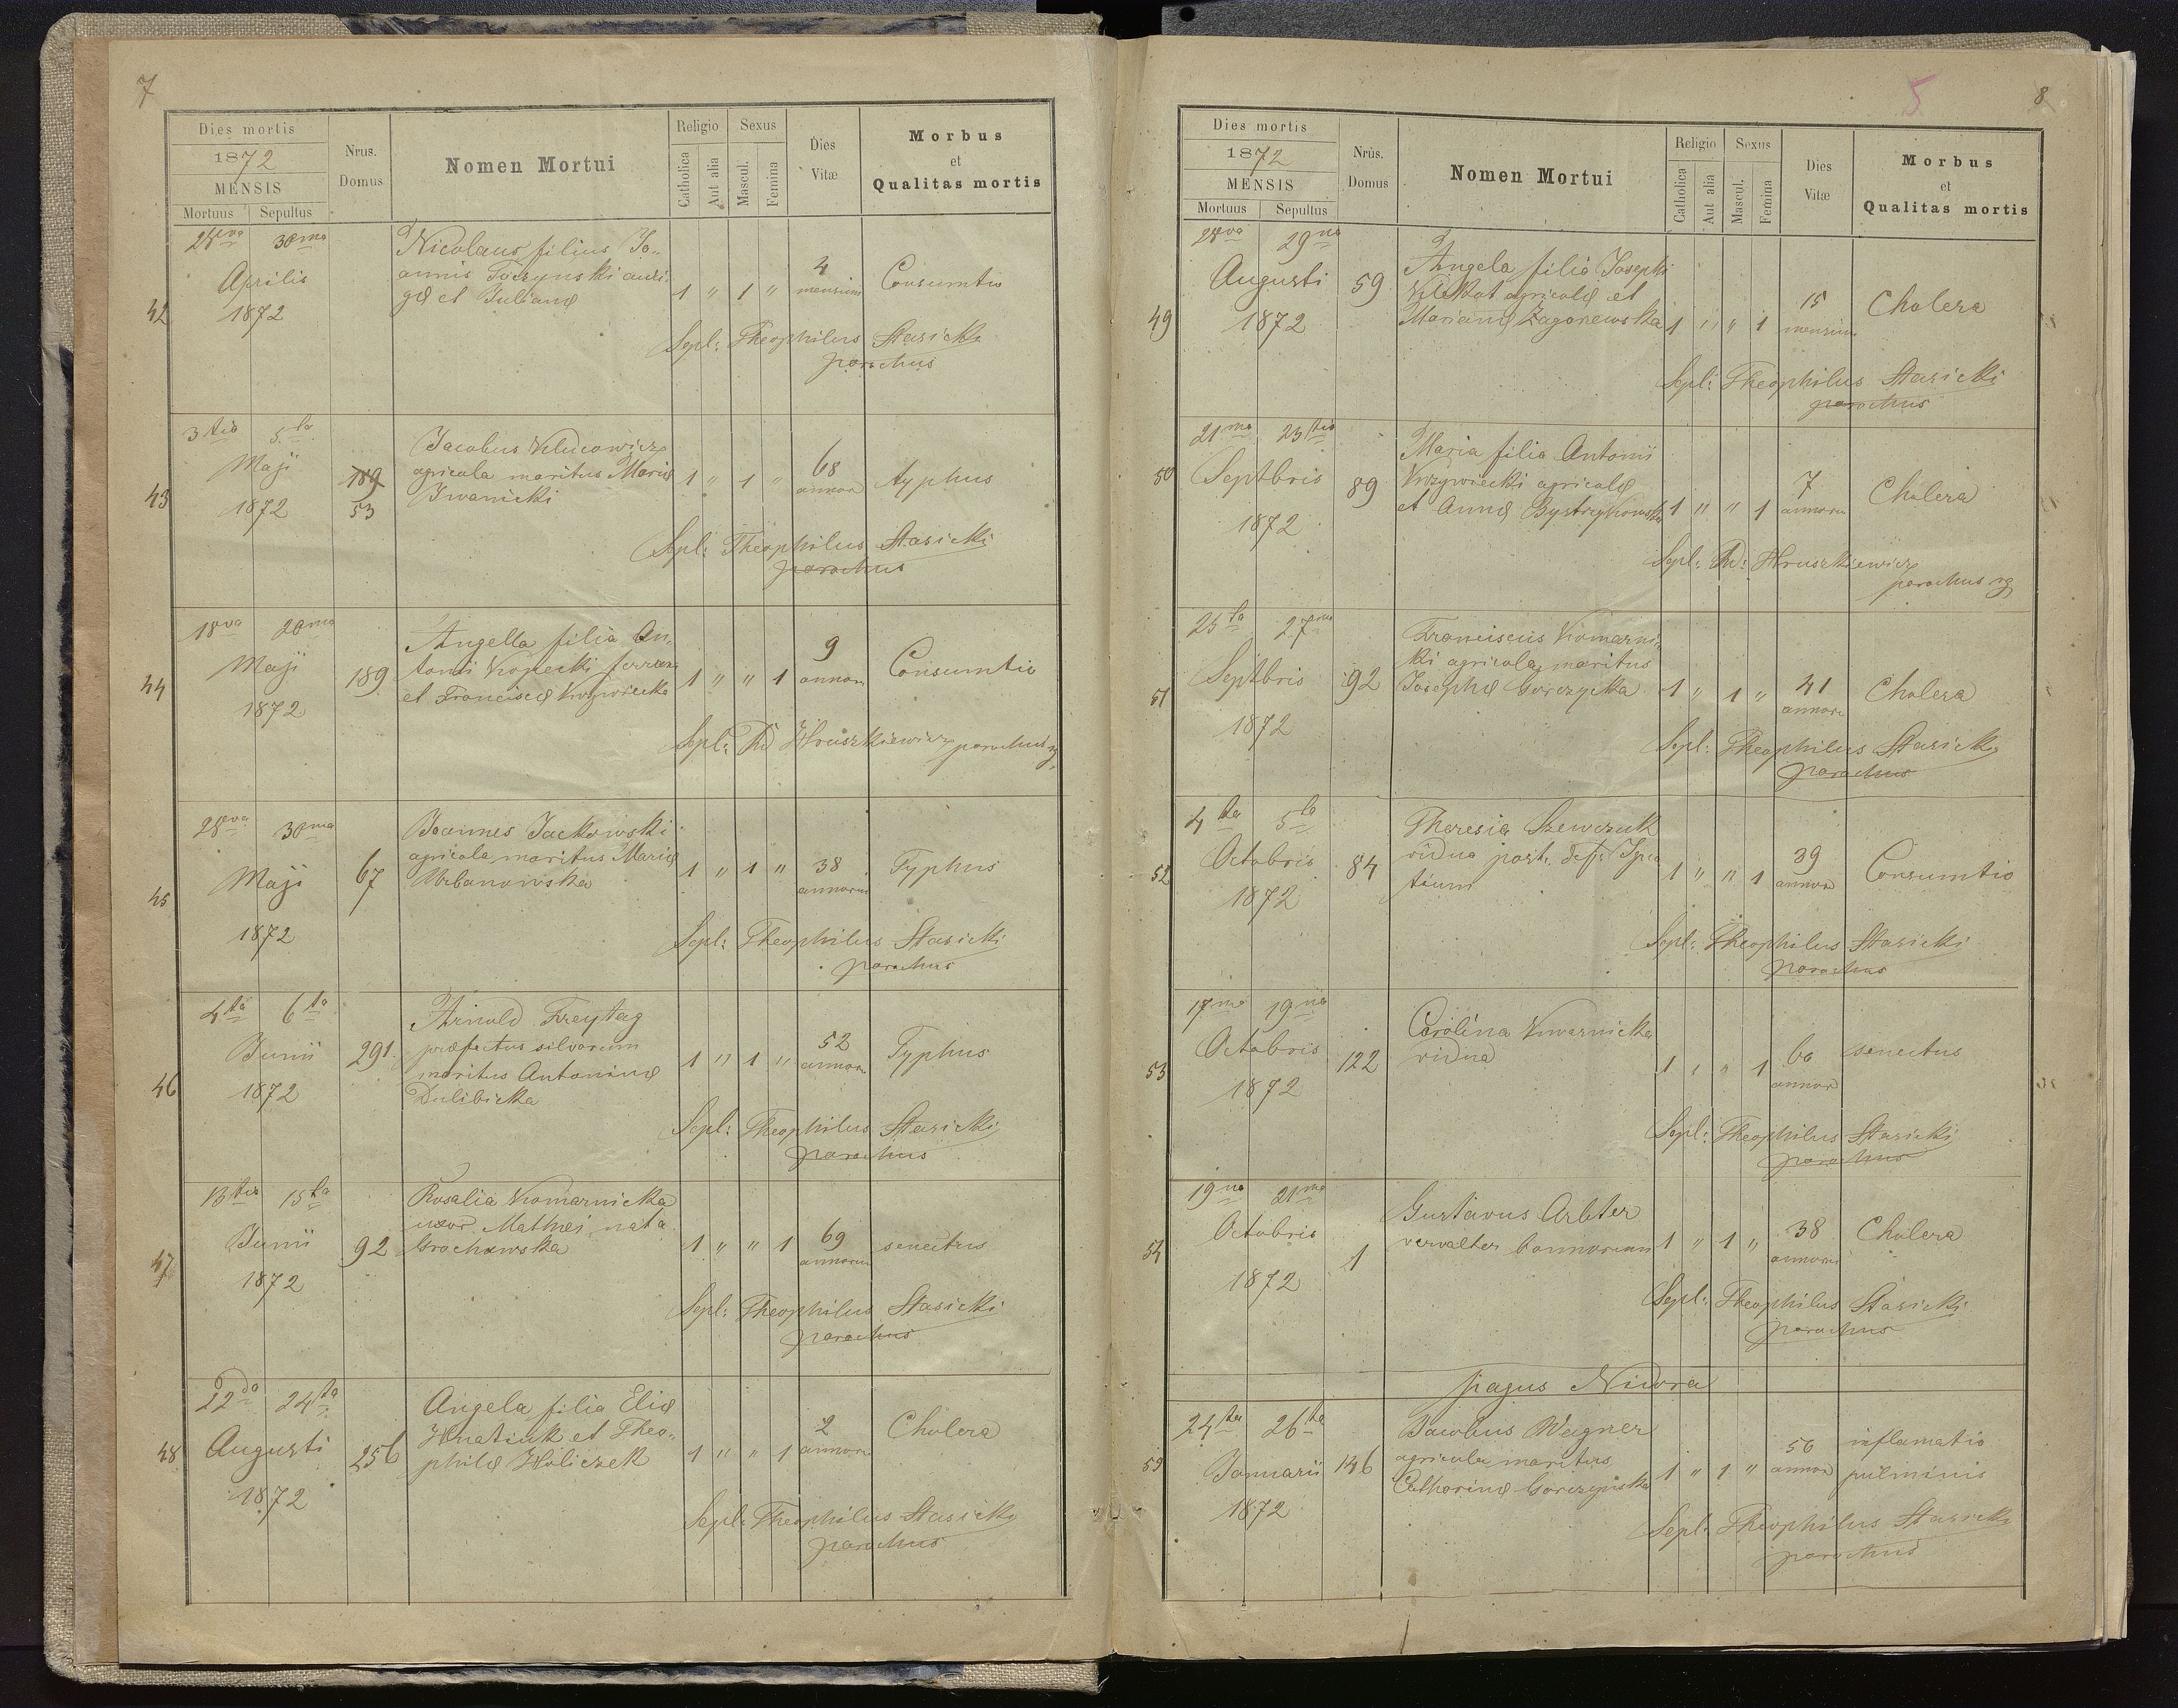 7
Dies mortis
1872
MENSIS
Mortuus Sepultus
Nrus. Domus
Nomen Mortui
Religio
Catholica
Aut alia
Sexus
Mascul.
Femina
Dies Vitæ
Morbus
et
Qualitas mortis
42
28va 30ma
Aprilis
1872
Nicolaus filius Jo-
annis Toczynski auri-
gæ et Julianæ
1 " 1 "
4
mensium
Consumtio
Sepl: Theophilus Stasicki
parochus
43
3tia 5ta
Maji
1872
189
53
Jacobus
agricola maritus Mariæ
Iwanicki
1 " 1 "
68
annor
typhus
Sepl: Theophilus Stasicki
parochus
44
18va 20ma
Maji
1872
189
Angella filia An-
tonii Kopecki
et Franciscæ Krzywiecka
1 " " 1
9
annor
Consumtio
Sepl: Hruszkiewicz parochus
45
28va 30ma
Maji
1872
67
Joannes Jackowski
agricola maritus Mariæ
Urbanowska
1 " 1 "
38
annorum
Typhus
Sepl: Theophilus Stasicki
parochus
46
4ta 6ta
Junii
1872
291
Arnold Freytag
præfectus silvarum
maritus Antoninæ
Dulibicka
1 " 1 "
52
annor
Typhus
Sepl: Theophilus Stasicki
parochus
47
13tia 15ta
Junii
1872
92
Rosalia Komarnicka
uxor Mathæi nata
Grochowska
1 " " 1
69
annorum
senectus
Sepl: Theophilus Stasicki
parochus
48
22da 24ta
Augusti
1872
256
Angela filia Eliæ
Hnatiuk et Theo-
philæ Holiczek
1 " " 1
2
annor
Cholera
Sepl: Theophilus Stasicki
parochus
5
8
Dies mortis
1872
MENSIS
Mortuus Sepultus
Nrus. Domus
Nomen Mortui
Religio
Catholica
Aut alia
Sexus
Mascul.
Femina
Dies Vitæ
Morbus
et
Qualitas mortis
49
28va 29na
Augusti
1872
59
Angela filia Josephi
agricolæ et
Mariannæ Zagorzewska
1 " " 1
15
mensium
Cholera
Sepl: Theophilus Stasicki
parochus
50
21ma 23tia
Septbris
1872
89
Maria filia Antonii
Krzywiecki agricolæ
et Annæ Bystrykowska
1 " " 1
7
annorum
Cholera
Sepl: Hruszkiewicz
parochus
51
25ta 27ma
Septbris
1872
92
Franciscus Komarni-
ki agricola maritus
Josephæ Gorczycka
1 " 1 "
41
annor
Cholera
Sepl: Theophilus Stasicki
parochus
52
4ta 5ta
Octobris
1872
84
Theresia Szewczuk
vidua post def: Igna
tium
1 " " 1
39
annor
Consumtio
Sepl: Theophilus Stasicki
parochus
53
17ma 19na
Octobris
1872
122
Carolina Kwarnicka
vidua
1 " " 1
60
annor
senectus
Sepl: Theophilus Stasicki
parochus
54
19na 21ma
Octobris
1872
1
Gustavus Arbter
verwalter bonnorum
1 " 1 "
38
annorum
Cholera
Sepl: Theophilus Stasicki
parochus
pagus Niwra
55
24ta 26ta
Januarii
1872
146
Jacobus Wegner
agricola maritus
Catharinæ Gorczynska
1 " 1 "
56
annor
inflamatio
pulminis
Sepl: Theophilus Stasicki
parochus